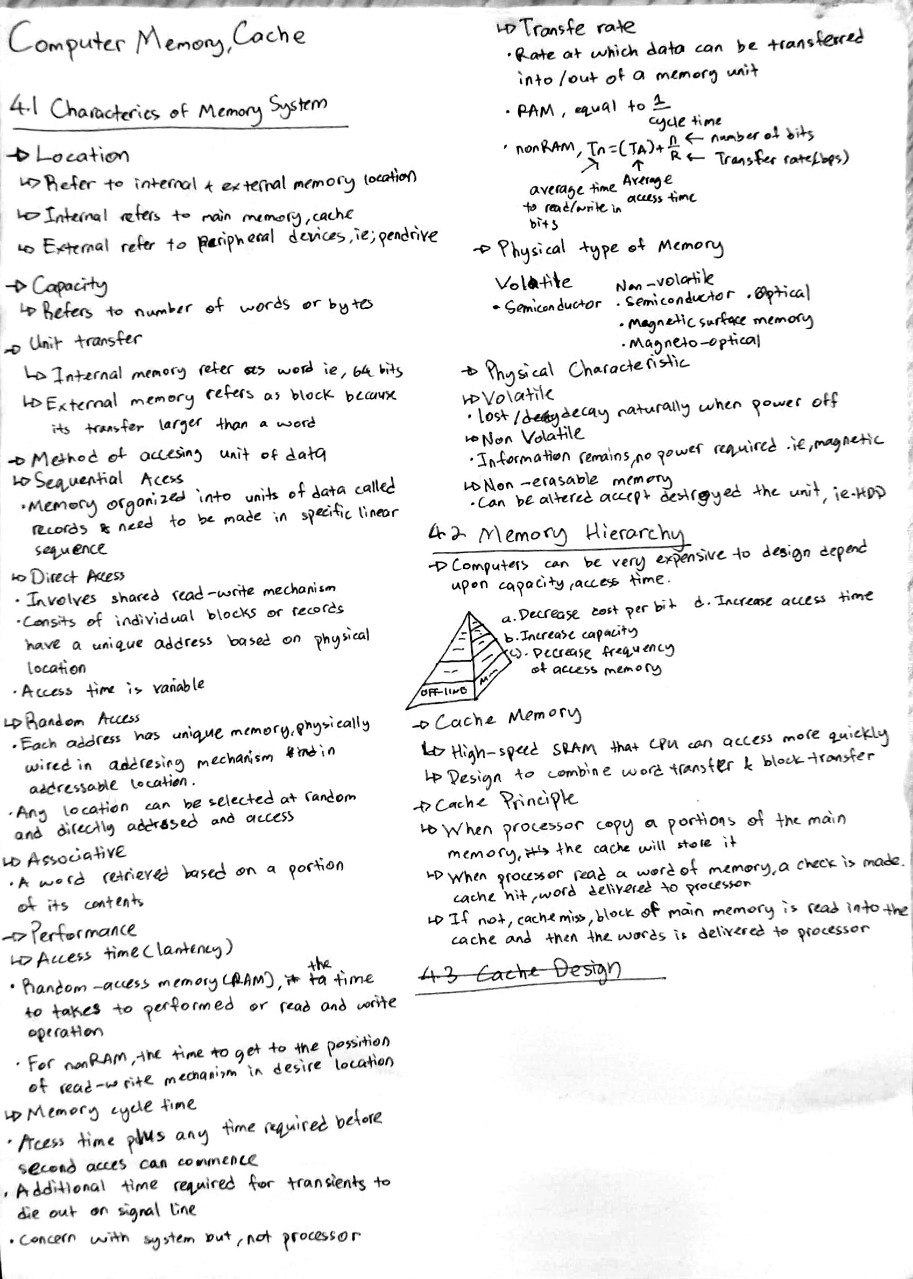 Computer Memory, Cache
4.1 Characterics of Memory System
→ Location
↳ Refer to internal & external memory location
↳ Internal refers to main memory, cache
↳ External refer to peripheral devices, ie; pendrive
→ Capacity
↳ Refers to number of words or bytes
→ Unit transfer
↳ Internal memory refer as word ie, 64 bits
↳ External memory refers as block because
its transfer larger than a word
→ Method of accesing unit of data
↳ Sequential Acess
• Memory organized into units of data called
records & need to be made in specific linear
sequence
↳ Direct Access
• Involves shared read-write mechanism
• Consits of individual blocks or records
have a unique address based on physical
location
• Access time is variable
↳ Random Access
• Each address has unique memory, physically
wired in addresing mechanism in
addressable location.
• Any location can be selected at random
and directly addresed and access
↳ Associative
• A word retrieved based on a portion
of its contents
→ Performance
↳ Access time (lantency)
• Random-access memory (RAM), the time
to takes to performed or read and write
operation
• For nonRAM, the time to get to the possition
of read-write mechanism in desire location
↳ Memory cycle time
• Acess time plus any time required before
second acces can commence
• Additional time required for transients to
die out on signal line
• Concern with system but, not processor
↳ Transfe rate
• Rate at which data can be transferred
into/out of a memory unit
• RAM, equal to 1
cycle time
• nonRAM, Tn = (TA) + n/R ← number of bits
← Transfer rate (bps)
average time Average
to read/write in access time
bits
→ Physical type of Memory
Volatile Non-volatile
• Semiconductor • Semiconductor • Optical
• Magnetic surface memory
• Magneto-optical
→ Physical Characteristic
↳ Volatile
• lost/decay naturally when power off
↳ Non Volatile
• Information remains, no power required .ie, magnetic
↳ Non-erasable memory
• Can be altered accept destroyed the unit, ie-HDD
4.2 Memory Hierarchy
→ Computers can be very expensive to design depend
upon capacity, access time.
a. Decrease cost per bit d. Increase access time
b. Increase capacity
c. Decrease frequency
of access memory
OFF-LINE
→ Cache Memory
↳ High-speed SRAM that CPU can access more quickly
↳ Design to combine word transfer & block transfer
→ Cache Principle
↳ When processor copy a portions of the main
memory, the cache will store it
↳ When processor read a word of memory, a check is made.
cache hit, word delivered to processor
↳ If not, cache miss, block of main memory is read into the
cache and then the words is delivered to processor
4.3 Cache Design